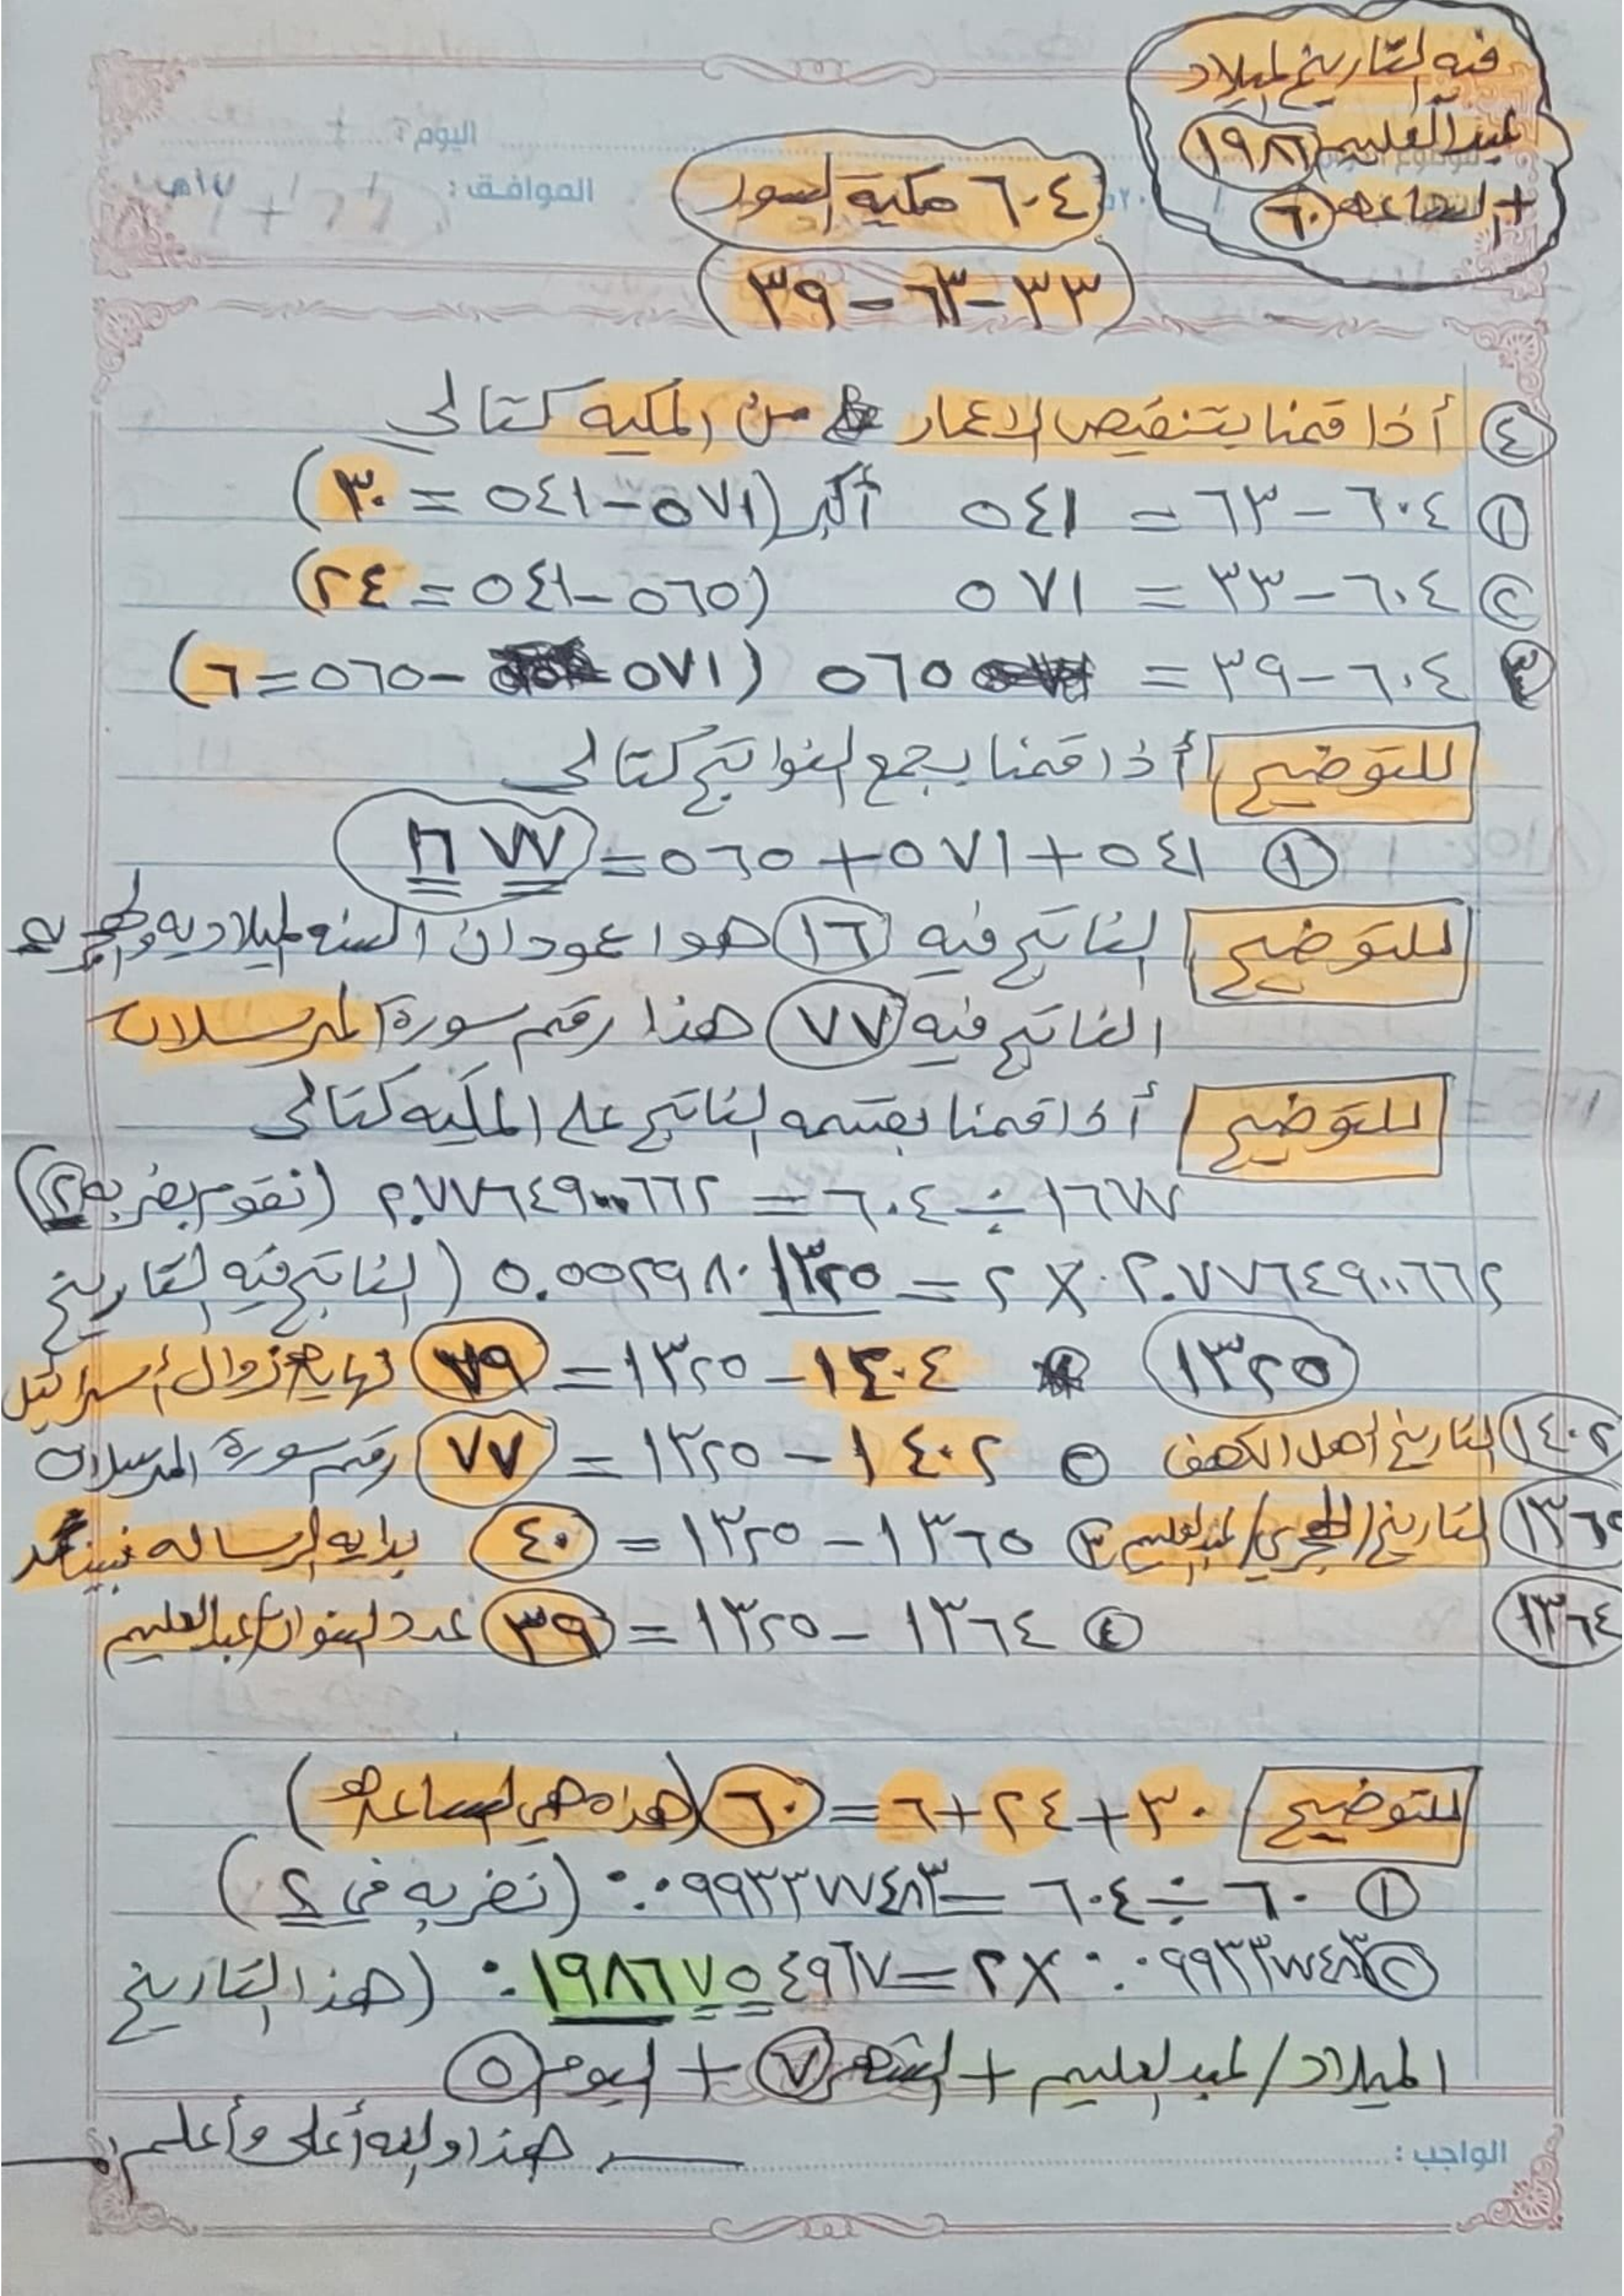 فيه التاريخ لميلاد
عبدالعليم ١٩٨٦
+ الساعه ٦٠
اليوم :
الموافق : / / ١٤هـ
٦٠٤ مكية السور
(٣٣-٦٣-٣٩)
④ أذا قمنا بتنقيص الاعمار من المكيه كتالي
① ٦٠٤-٦٣ = ٥٤١ أكبر (٥٧١-٥٤١ = ٣٠)
② ٦٠٤-٣٣ = ٥٧١ (٥٦٥-٥٤١ = ٢٤)
③ ٦٠٤-٣٩ = ٥٦٥ (٥٧١-٥٦٥=٦)
للتوضيح أذا قمنا بجمع النواتج كتالي
① ٥٤١+٥٧١+٥٦٥=١٦٧٧
للتوضيح الناتج فيه ١٦ هوا عودان السنه الميلاديه والهجريه
الناتج فيه ٧٧ هذا رقم سورة المرسلات
للتوضيح أذا قمنا بقسمه الناتج على المكيه كتالي
١٦٧٧÷٦٠٤ = ٢.٧٧٦٤٩٠٠٦٦٢ (نقوم بضربه ٢)
٢.٧٧٦٤٩٠٠٦٦٢ × ٢ = ٥.٥٥٢٩٨٠١٣٢٥ (الناتج فيه التاريخ
١٣٢٥ ١٤٠٤-١٣٢٥=٧٩ نهايه زوال أسرائيل
١٤٠٢ التاريخ أهل الكهف ② ١٤٠٢-١٣٢٥=٧٧ رقم سورة المرسلات
١٣٦٥ التاريخ/الهجري/لعبدالعليم ③ ١٣٦٥-١٣٢٥=٤٠ بدايه الرساله نبينا محمد
١٣٦٤ ④ ١٣٦٤-١٣٢٥=٣٩ عدد السنوات/عبدالعليم
للتوضيح ٣٠+٢٤+٦=٦٠ (هذه هي الساعه)
① ٦٠÷٦٠٤=٠.٠٩٩٣٣٧٧٤٨٣ (نضربه في ٢)
② ٠.٠٩٩٣٣٧٧٤٨٣×٢=٠.١٩٨٦٧٥٤٩٦٧ (هذا التاريخ
الميلاد/لعبدالعليم + الشهر ٧ + اليوم ٥
هذا والله أعلى وأعلم
الواجب :